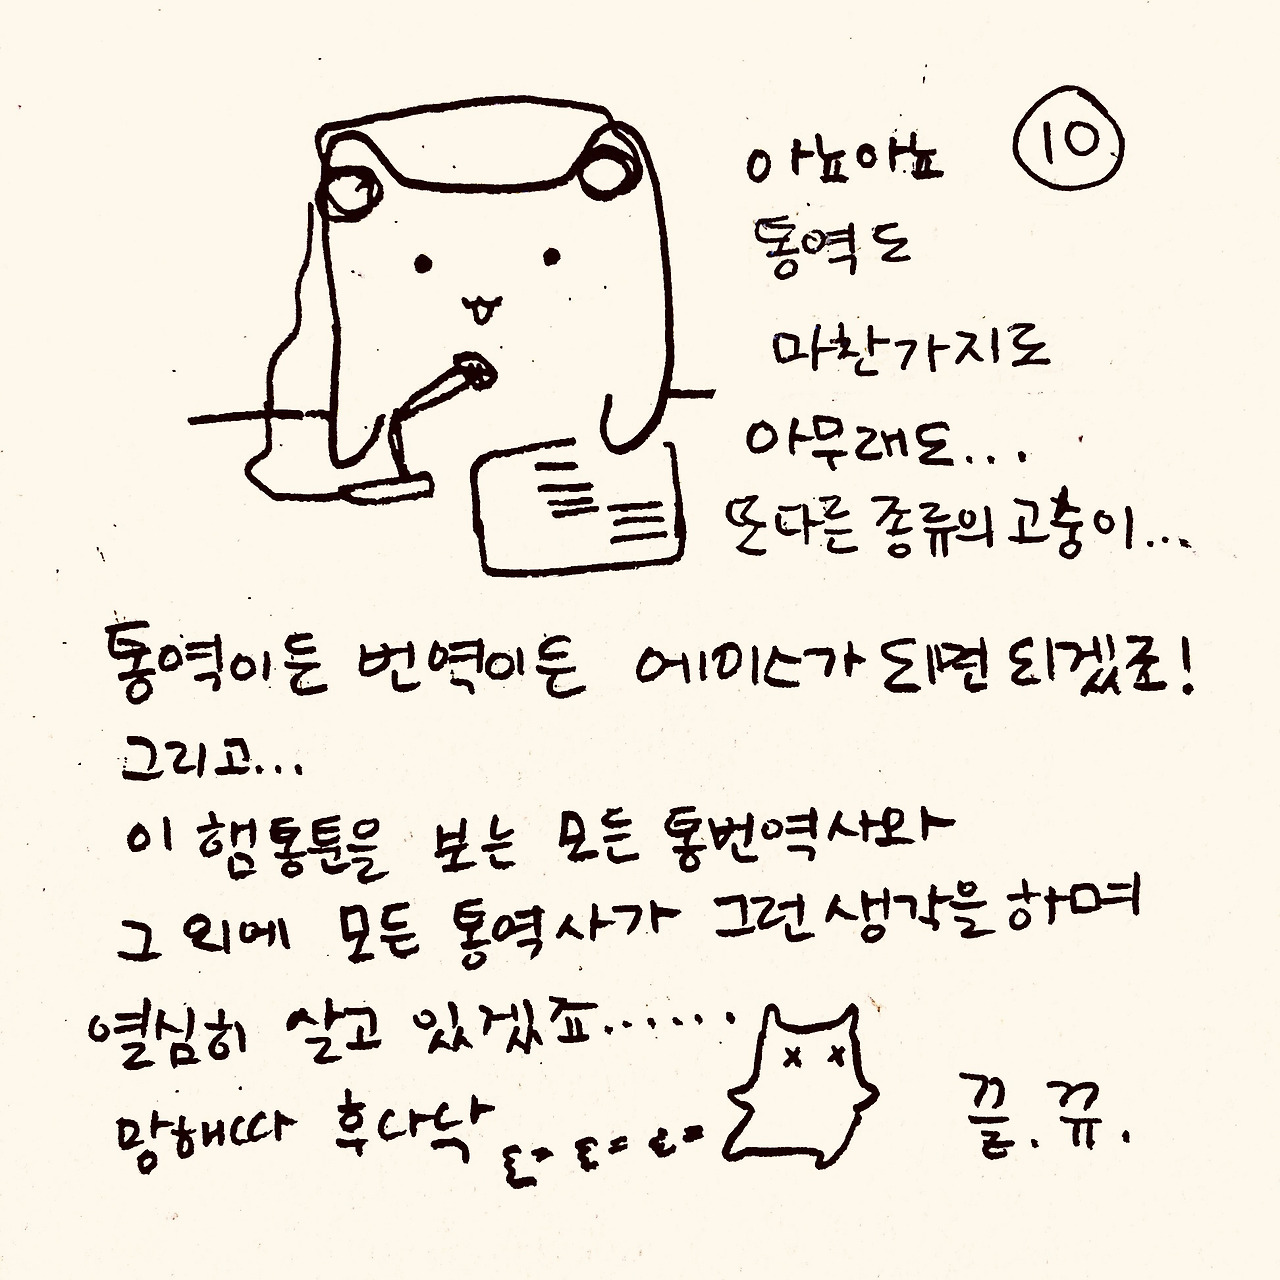 10
아뇨아뇨
통역도
마찬가지로
아무래도...
또다른 종류의 고충이...
통역이든 번역이든 에이스가 되면 되겠죠!
그리고...
이 햄통툰을 보는 모든 통번역사와
그 외에 모든 통역사가 그런 생각을 하며
열심히 살고 있겠죠......
망해따 후다닥
끝. 뀨.